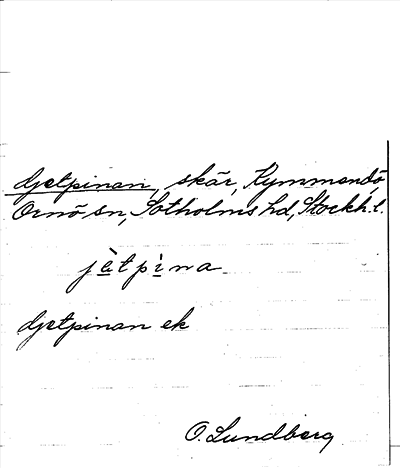 Getpinan, skär, Kymmendö,
Ornö sn, Sotholms hd, Stockh. l.
jètpìna
Getpinan ek
O. Lundberg